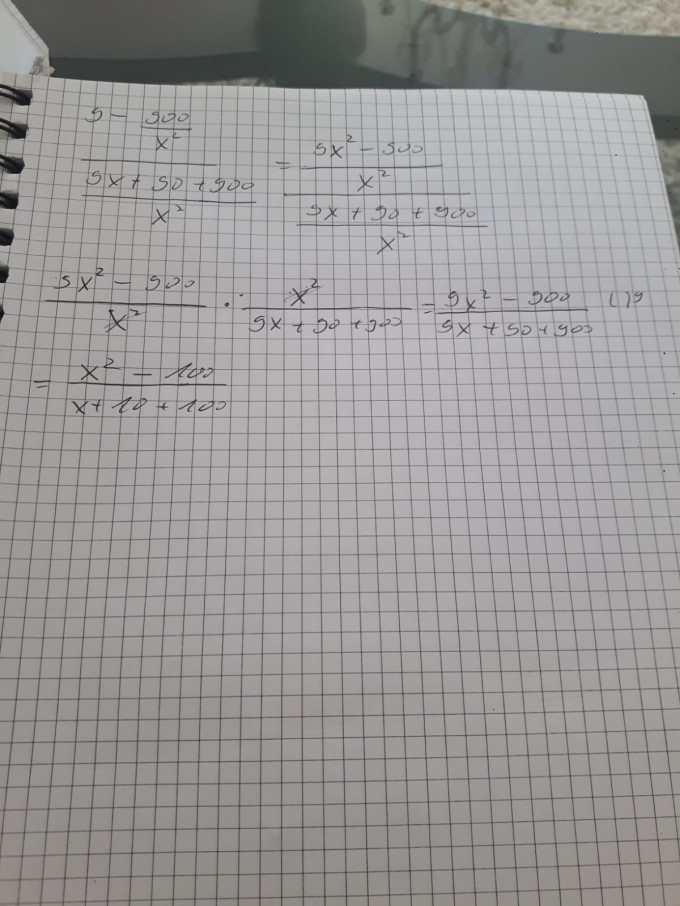 5 - 500 / x² / 5x + 50 + 500 / x² = 5x² - 500 / x² / 5x + 50 + 500 / x²
5x² - 500 / x² · x² / 5x + 50 + 500 = 5x² - 500 / 5x + 50 + 500 (:)5
= x² - 100 / x + 10 + 100